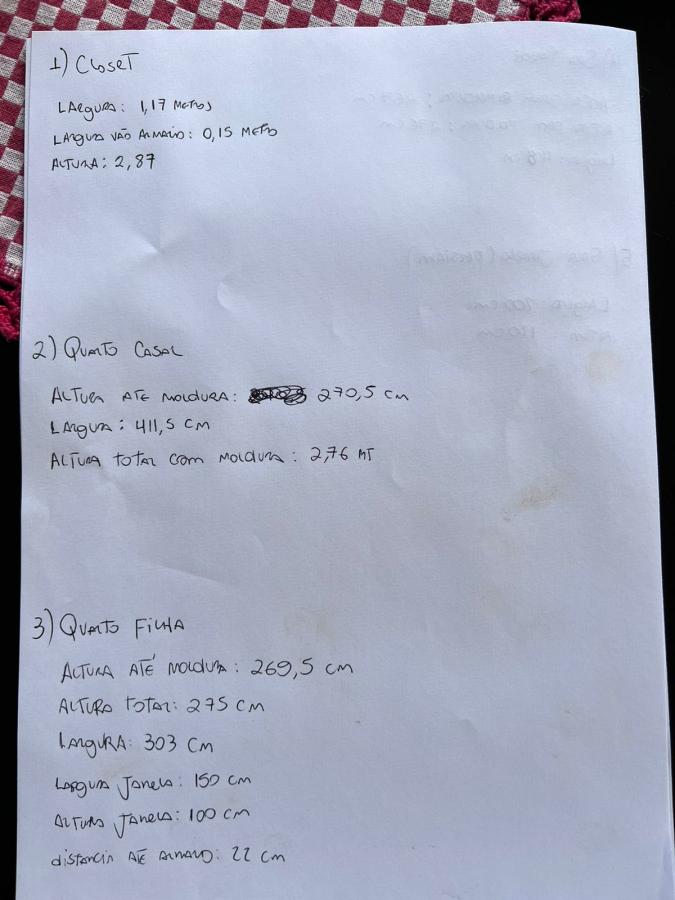 1) Closet
Largura: 1,17 metros
Largura vão armário: 0,15 metro
Altura: 2,87
2) Quarto Casal
Altura até moldura: 270,5 cm
Largura: 411,5 cm
Altura total com moldura: 2,76 MT
3) Quarto Filha
Altura até moldura: 269,5 cm
Altura total: 275 cm
Largura: 303 cm
Largura Janela: 150 cm
Altura Janela: 100 cm
distancia até armario: 22 cm